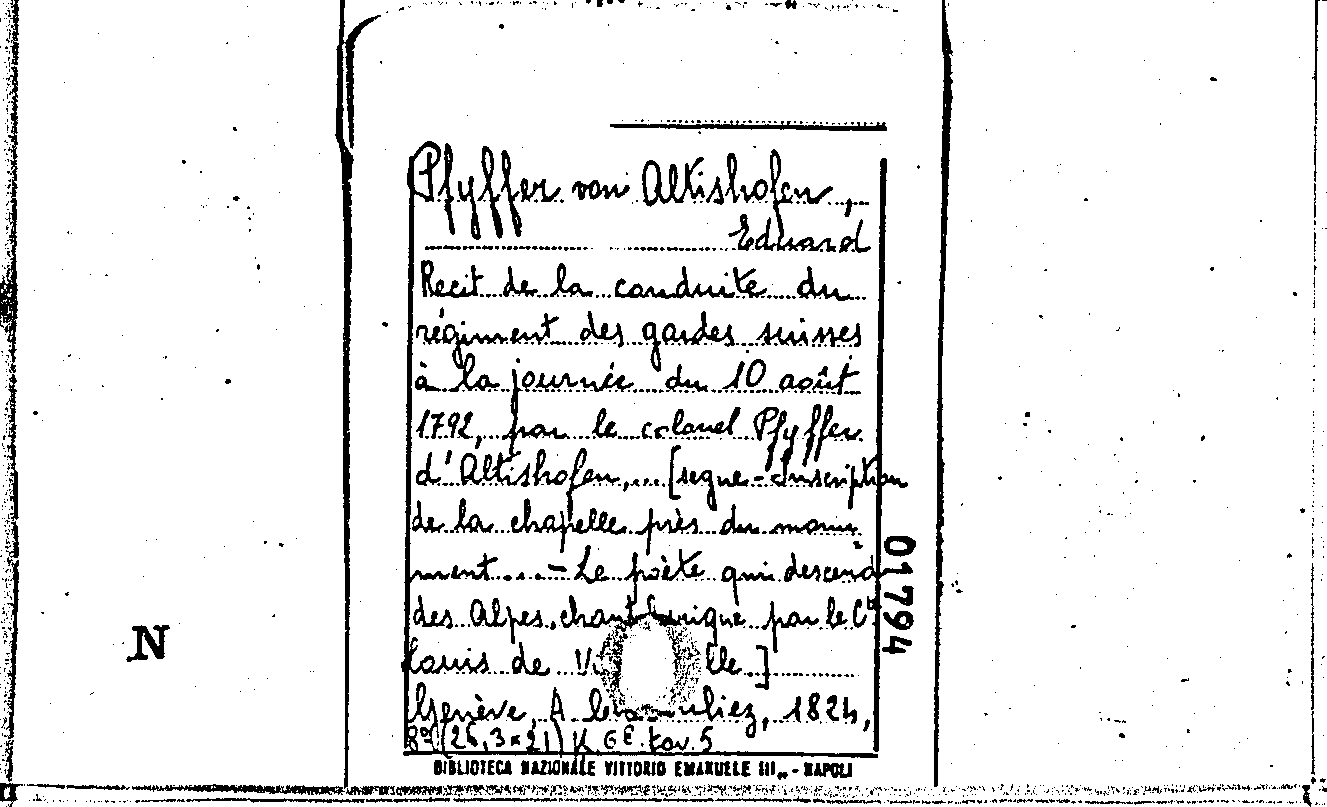 Pfyffer von Altishofen,
Eduard
Recit de la conduite du
régiment des gardes suisses
à la journée du 10 août
1792, par le colonel Pfyffer
d'Altishofen,... [segue-Inscription
de la chapelle près du monu-
ment... - Le poète qui descend
des Alpes, chant lirique par le Cte
Louis de V lle]
Genève, A. 1824,
8° (26,3×21) tav. 5
BIBLIOTECA NAZIONALE VITTORIO EMANUELE III„ - NAPOLI
01794
N